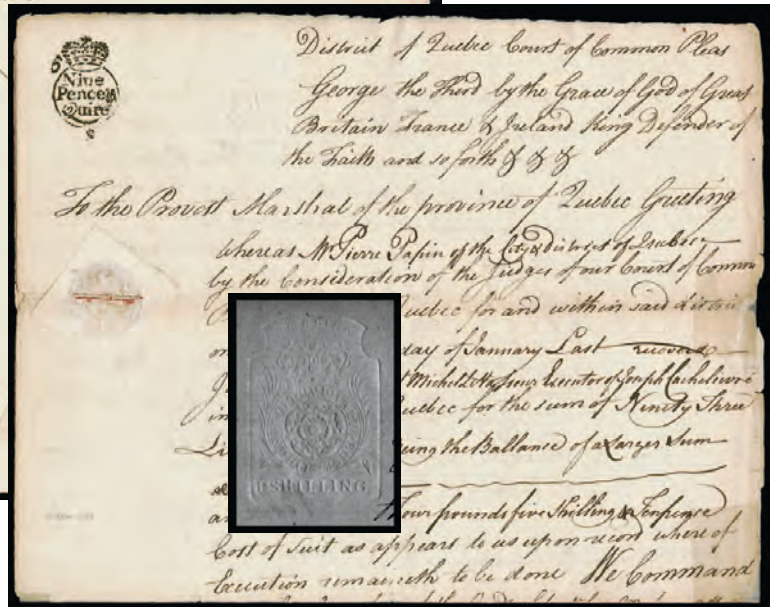 Nine
Pence
Quire
District of Quebec Court of Common Pleas
George the Third by the Grace of God of Great
Britain France & Ireland King Defender of
the Faith and so forth & & &
To the Provost Marshal of the province of Quebec Greeting
Whereas Mr Pierre Papin of the City & district of Quebec
by the Consideration of the Judges of our Court of Common
Quebec for and within said district
on day of January Last recovered
Michel Executor of Joseph
in Quebec for the sum of Ninety Three
being the Ballance of a Larger Sum
four pounds five Shilling & Tenpence
Cost of Suit as appears to us upon record where of
Execution remaineth to be done We Command
SHILLING